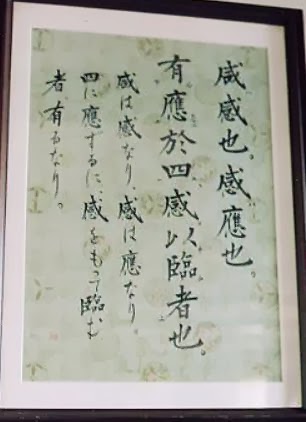 咸感也。感應也。
有應於四感以臨者也。
咸は感なり、感は應なり。
四に應するに、感をもって臨む
者有るなり。